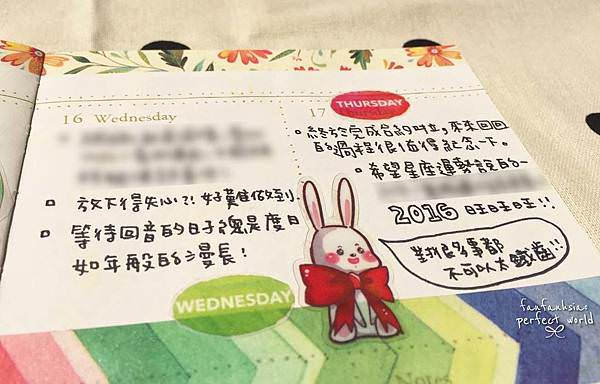 16 Wednesday
放下得失心?! 好難做到.
等待回音的日子總是度日
如年般的漫長!
WEDNESDAY
17
THURSDAY
終於完成合約用印, 來來回回
的過程很值得記念一下。
希望星座運勢說的一
2016 旺旺旺旺!!
對很多事都
不可以太鐵齒!!
Notes
fanfanhsia's
perfect world